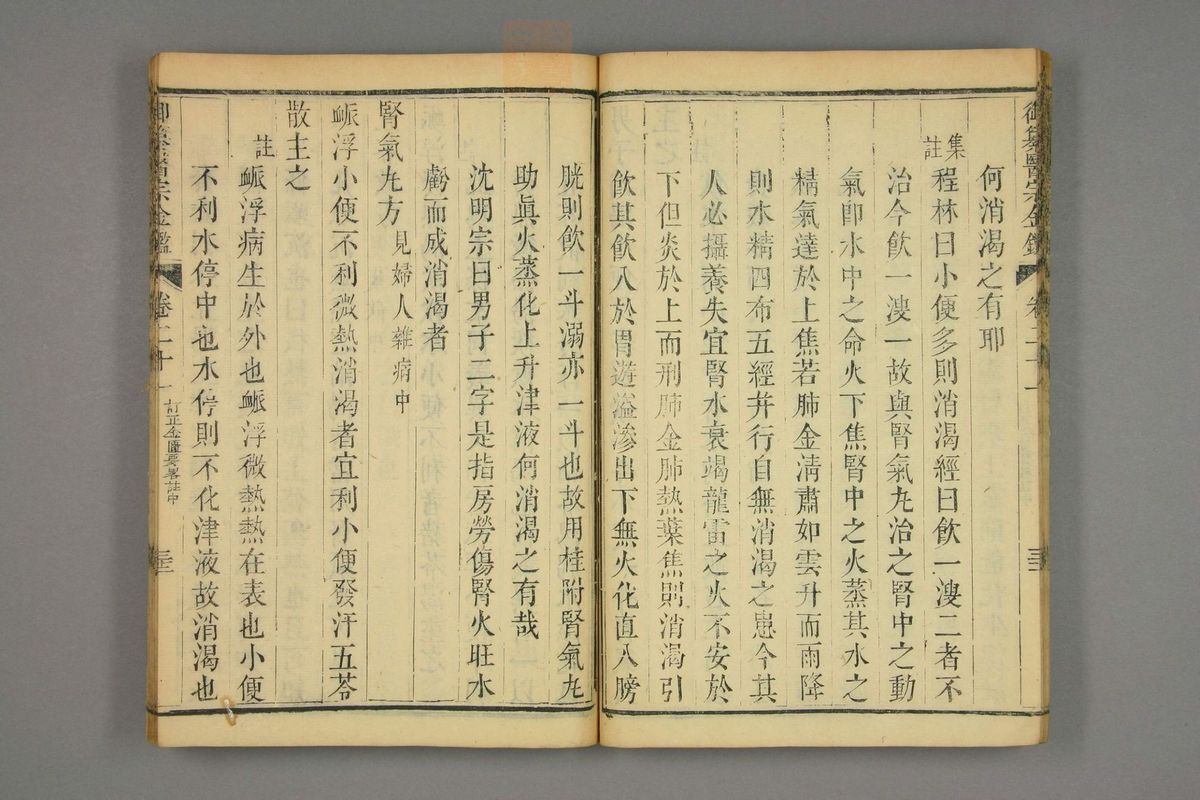 何消渴之有耶
集註
程林曰小便多則消渴經曰飲一溲二者不
治今飲一溲一故與腎氣丸治之腎中之動
氣卽水中之命火下焦腎中之火蒸其水之
精氣達於上焦若肺金淸肅如雲升而雨降
則水精四布五經并行自無消渴之患今其
人必攝養失宜腎水衰竭龍雷之火不安於
下但炎於上而刑肺金肺熱葉焦則消渴引
飮其飮入於胃遊溢滲出下無火化直入膀
胱則飲一斗溺亦一斗也故用桂附腎氣丸
助眞火蒸化上升津液何消渴之有哉
沈明宗曰男子二字是指房勞傷腎火旺水
虧而成消渴者
腎氣丸方 見婦人雜病中
䘑浮小便不利微熱消渴者宜利小便發汗五苓
散主之
註
䘑浮病生於外也䘑浮微熱熱在表也小便
不利水停中也水停則不化津液故消渴也
御纂醫宗金鑑
卷二十一
訂正金匱要畧註中